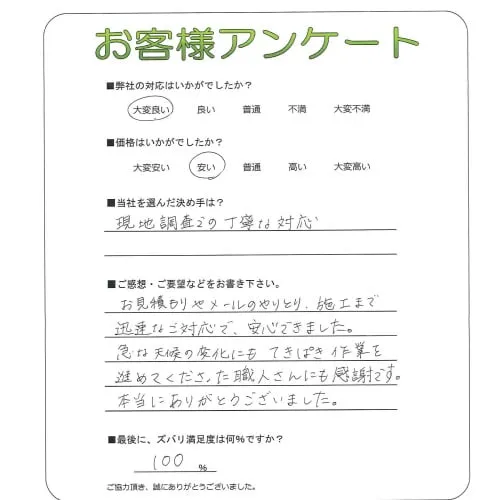 お客様アンケート
■弊社の対応はいかがでしたか？
大変良い 良い 普通 不満 大変不満
■価格はいかがでしたか？
大変安い 安い 普通 高い 大変高い
■当社を選んだ決め手は？
現地調査での丁寧な対応
■ご感想・ご要望などをお書き下さい。
お見積もりやメールのやりとり、施工まで
迅速なご対応で、安心できました。
急な天候の変化にも てきぱき作業を
進めてくださった職人さんにも感謝です。
本当にありがとうございました。
■最後に、ズバリ満足度は何％ですか？
100 ％
ご協力頂き、誠にありがとうございました。